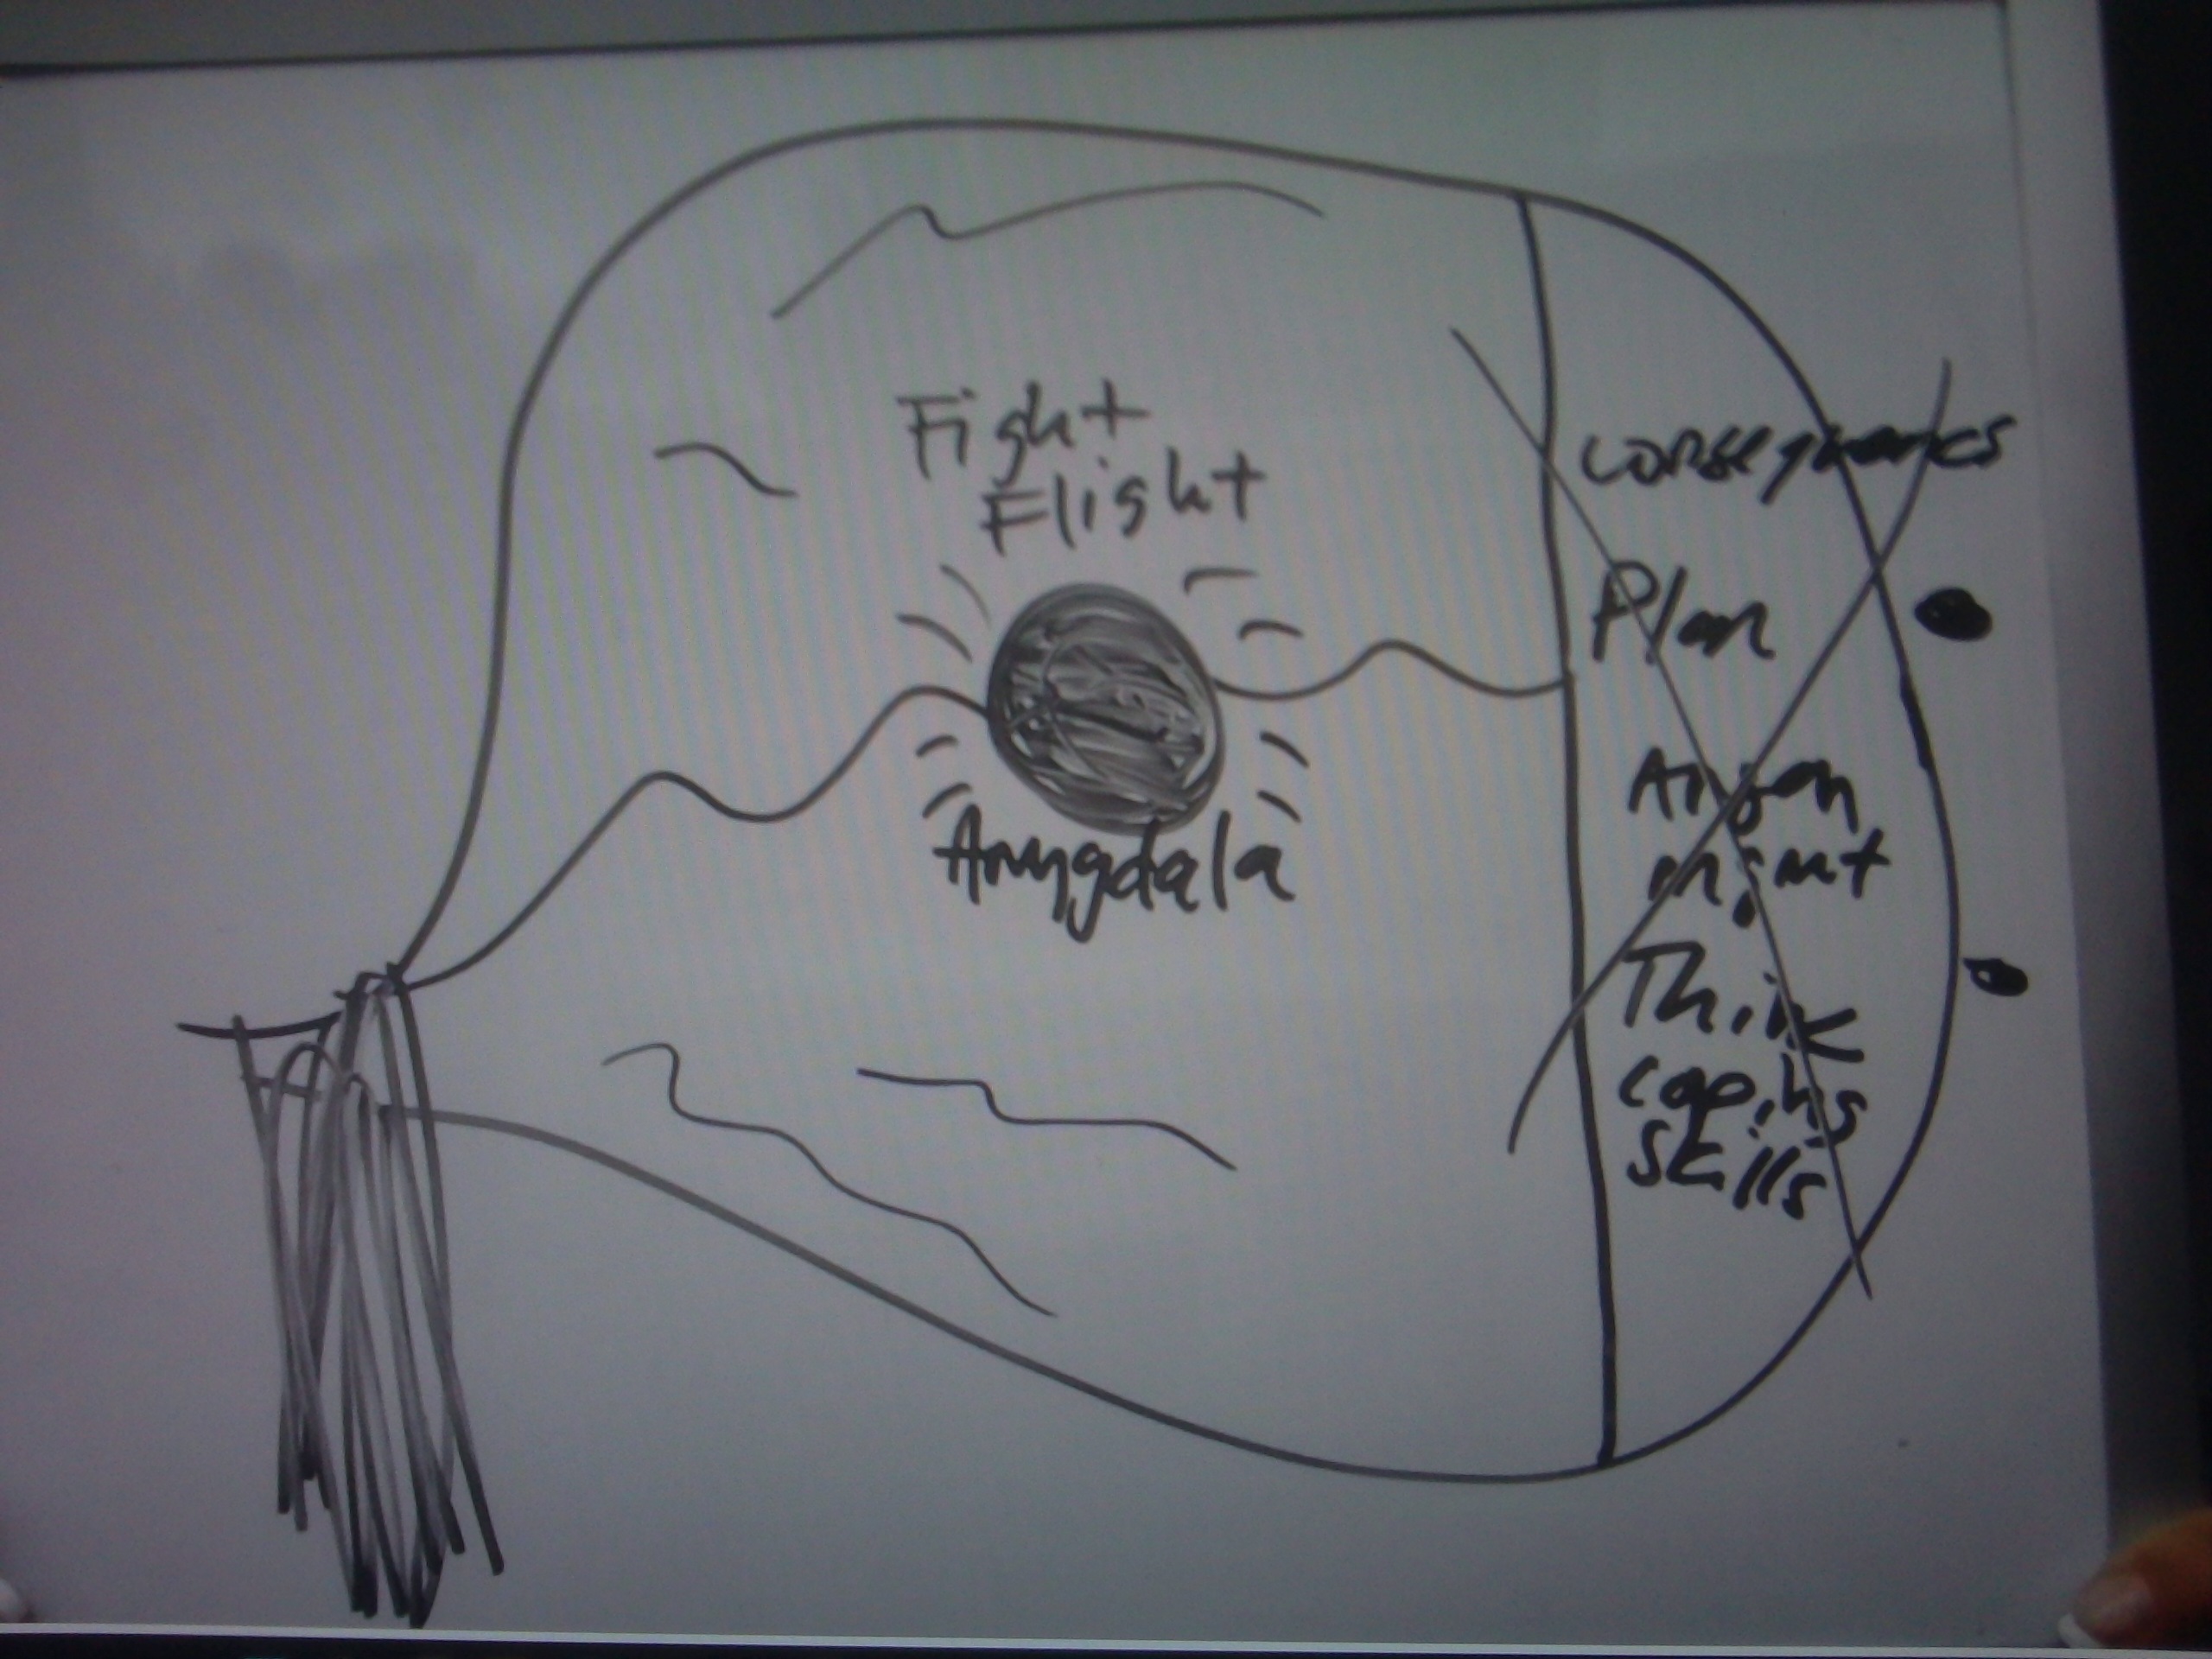 Fight
Flight
Amygdala
consequences
Plan
mgmt
Think
coping
skills